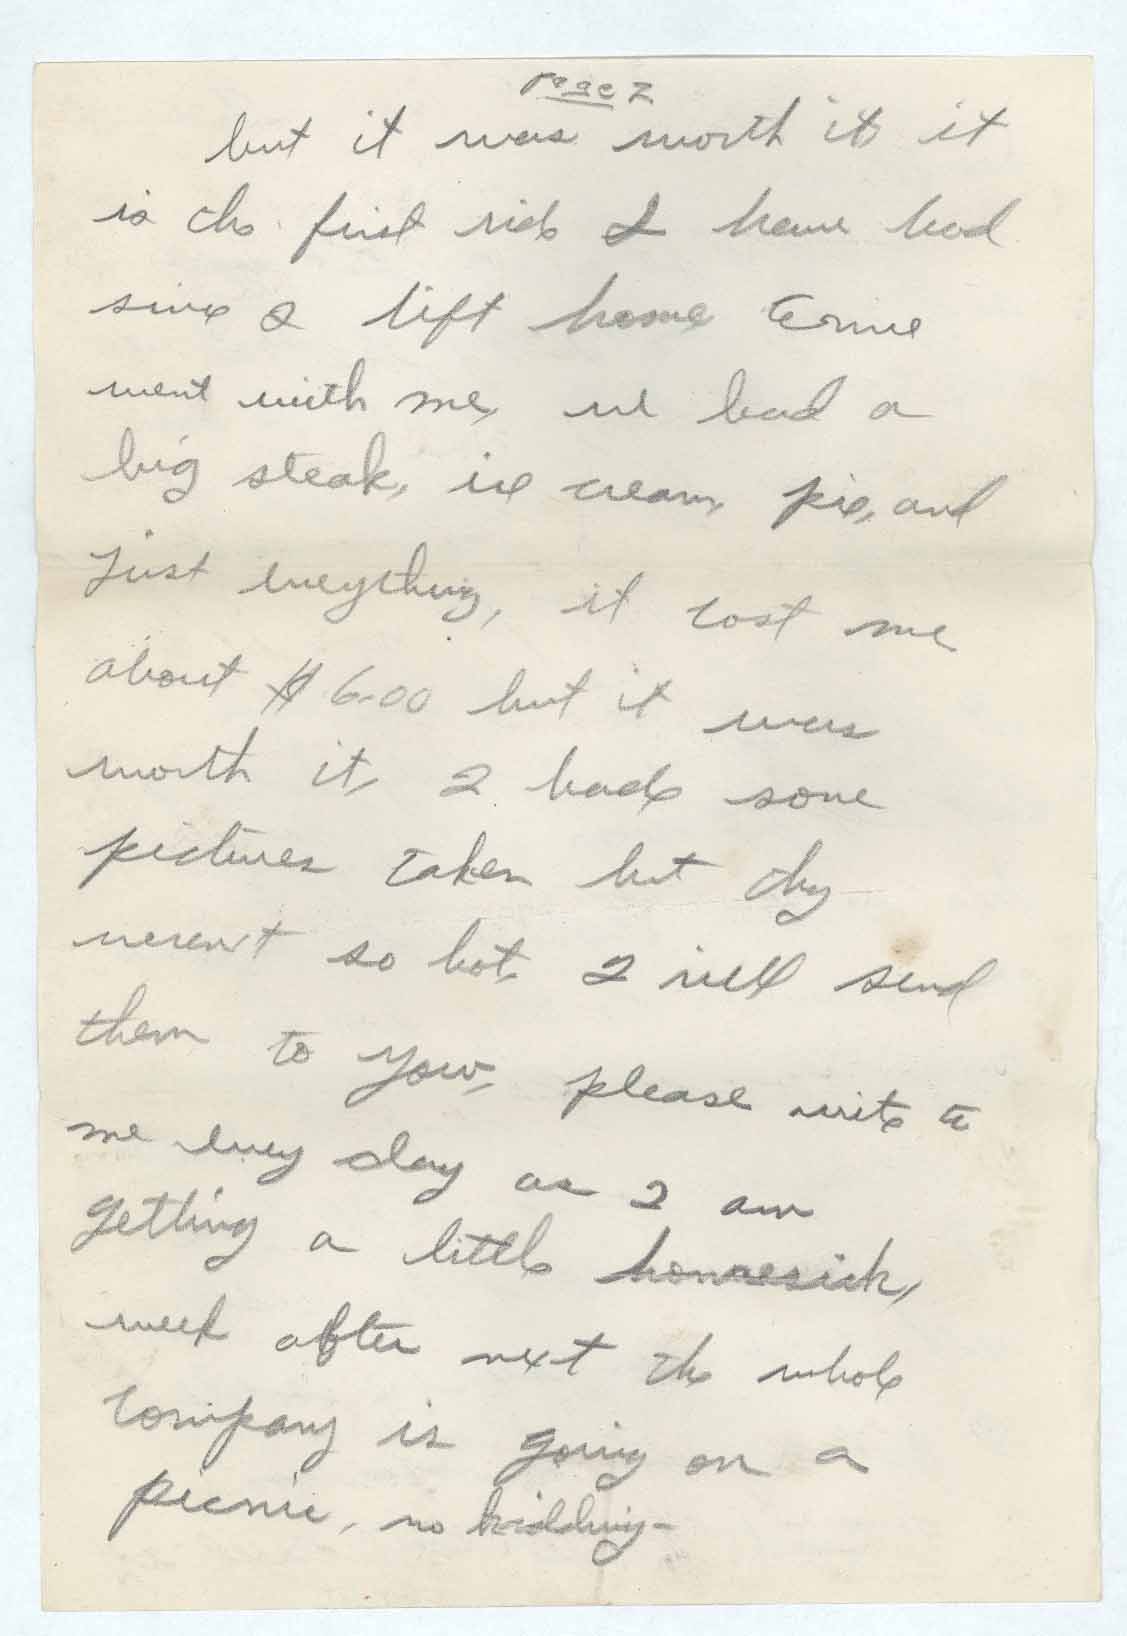 page 2
but it was worth it, it
is the first ride I have had
since I left home Ernie
went with me, we had a
big steak, ice cream, pie, and
just everything, it cost me
about $6.00 but it was
worth it, I hade some
pictures taken but they
weren't so hot, I will send
them to you, please write to
me every day as I am
getting a little homesick,
week after next the whole
company is going on a
picnic, no kidding-